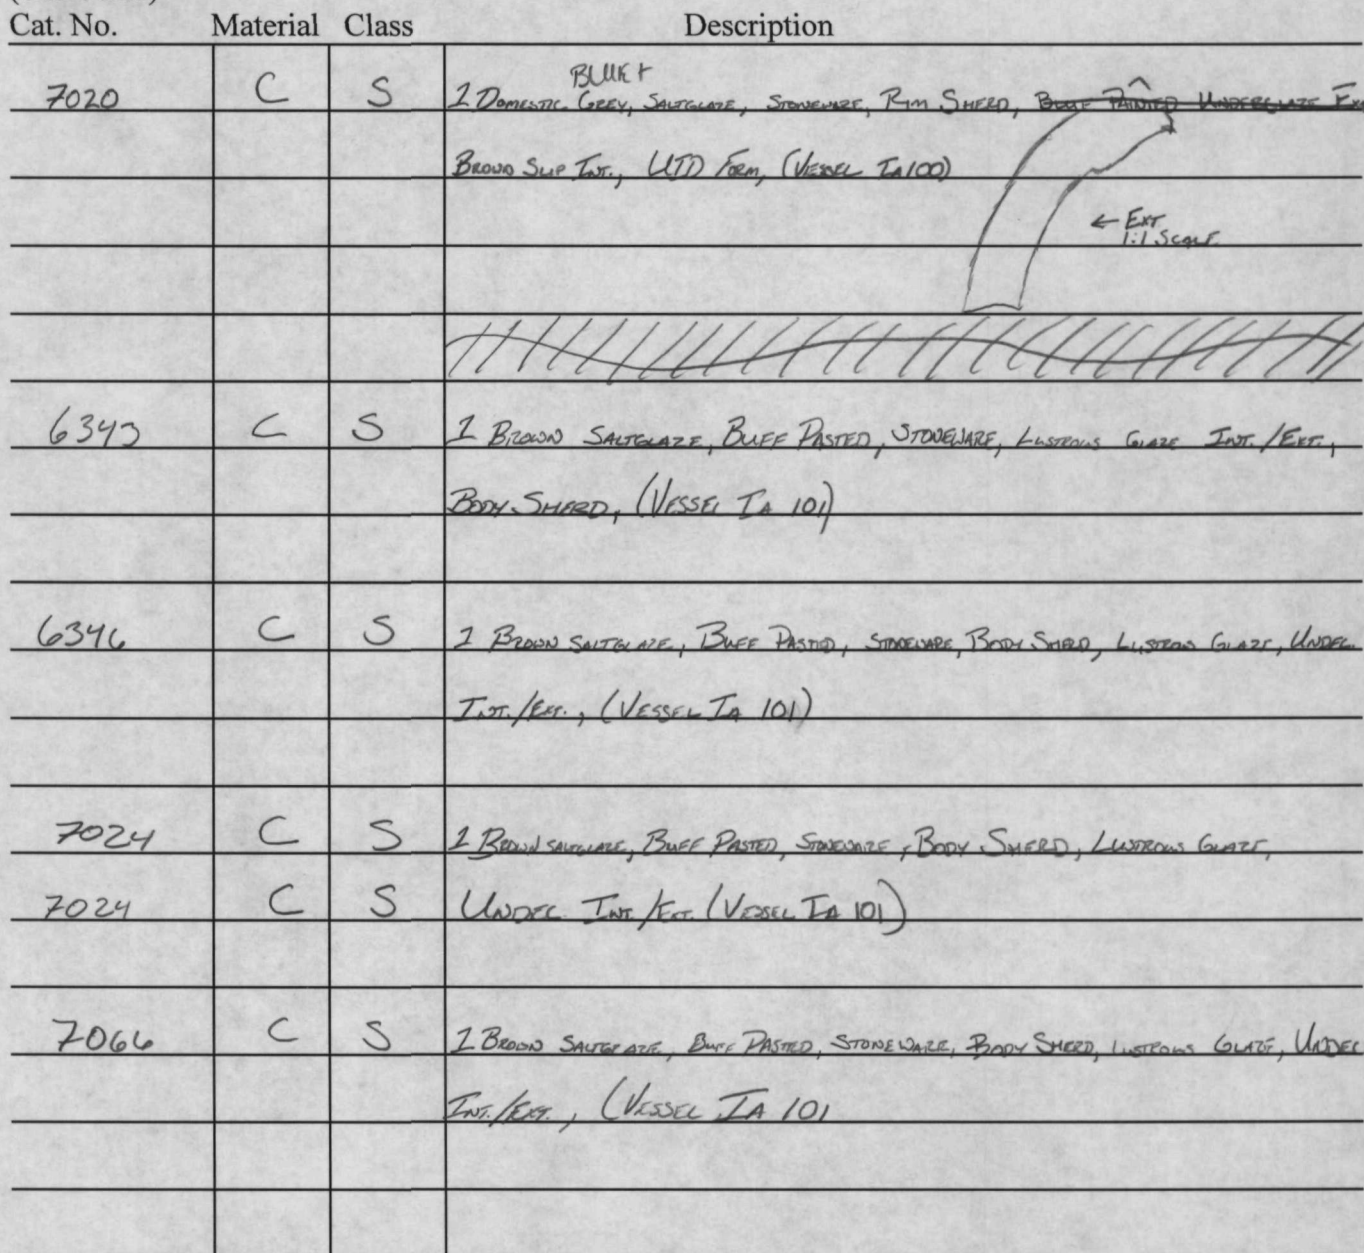 Cat. No. Material Class Description
BLUE +
7020 C S 1 DOMESTIC GREY, SALTGLAZE, STONEWARE, RIM SHERD, BLUE PAINTED UNDERGLAZE EX
BROWN SLIP INT., UTD FORM, (VESSEL IA 100)
← EXT.
1:1 SCALE
6343 C S 1 BROWN SALTGLAZE, BUFF PASTED, STONEWARE, LUSTROUS GLAZE INT./EXT.,
BODY SHERD, (VESSEL IA 101)
6346 C S 1 BROWN SALTGLAZE, BUFF PASTED, STONEWARE, BODY SHERD, LUSTROUS GLAZE, UNDEC.
INT./EXT., (VESSEL IA 101)
7024 C S 1 BROWN SALTGLAZE, BUFF PASTED, STONEWARE, BODY SHERD, LUSTROUS GLAZE,
7024 C S UNDEC. INT./EXT. (VESSEL IA 101)
7066 C S 1 BROWN SALTGLAZE, BUFF PASTED, STONEWARE, BODY SHERD, LUSTROUS GLAZE, UNDEC
INT./EXT., (VESSEL IA 101